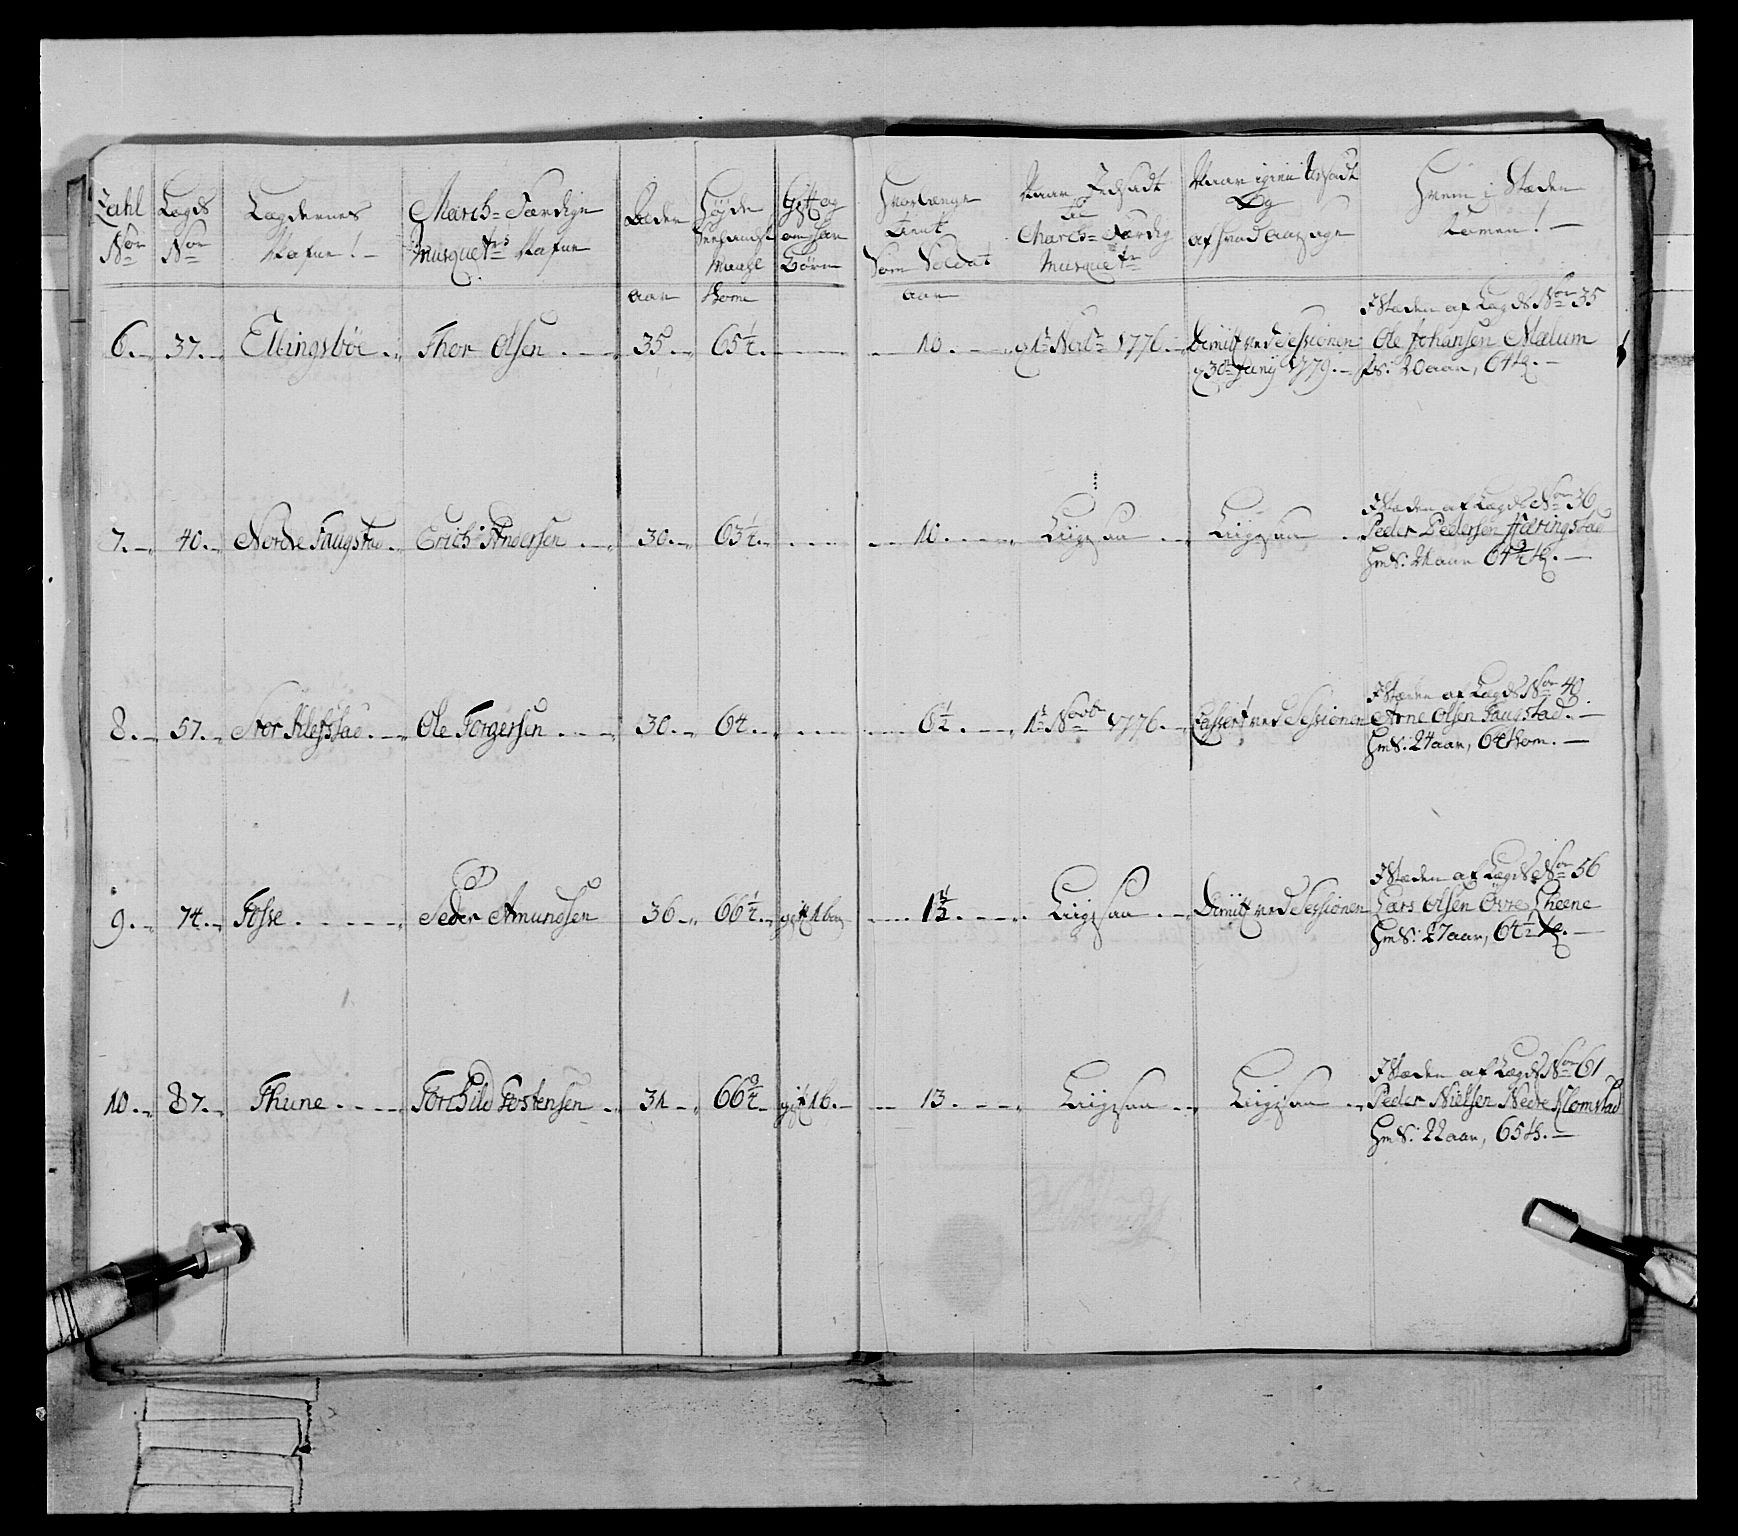 Zahl Nor
Lægds Nor
Lægdernes Nafne!
March-Færdige Musquetrs Nafne
Alder aar
Høyde Maahl Tome
Gift og om har Børn
Hvorlænge Tient Som Soldat aar
Naar Indsadt til March-Færdig Musquetr
Naar igien Udsadt Og af hvad aarsage
Hvem i Stæden Kommen!
6. 37. Ellingsböe Thor Olsen 35. 65 1/4. 10. 1st Novbr 1776. Dimitt ved Sessionen
d 30te Junij 1779.
I Stæden af Lægds Nor 35
Ole Johansen Mælum
20 aar, 64 T.
7. 40. Nordre Faugstad Erich Andersen 30. 63 1/4. 10. Liigesaa Liigesaa
I Stæden af Lægds Nor 36
Peder Pedersen Hæringstad
21 aar 64 3/4 T.
8. 57. Stor Klefstad Ole Torgersen 30. 64. 6 1/2. 1st Novbr 1776. Cassert ved Sessionen
I Stæden af Lægds Nor 40
Arne Olsen Faugstad.
24 aar, 64 Tom.
9. 74. Fosse Peder Amundsen 36. 66 1/4. gift 1 bm 1 1/2. Liigesaa Dimitt ved Sessionen
I Stæden af Lægds Nor 56
Lars Olsen Övre Sheene
27 aar, 64 1/2 T.
10. 87. Thune Torchild Tostensen 31 66 2/4. gift 1 b. 13. Liigesaa Liigesaa
I Stæden af Lægds Nor 61
Peder Nielsen Nedre Klomstad
22 aar, 65 T.